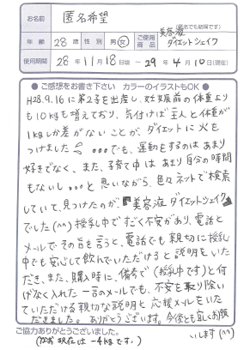 お名前 匿名希望
年齢 28歳 性別 男・女 ご使用商品 美容液ダイエットシェイク
使用期間 28年11月18日頃〜29年4月10日(現在)
●ご感想をお書き下さい カラーのイラストもOK●
H28.9.16に第2子を出産し、妊娠前の体重より
も10kgも増えており、気付けば主人と体重が
1kgしか差がないことが、ダイエットに火を
つけました。。。。でも、運動をするのはあまり
好きでなく、また、子育て中はあまり自分の時間
もないし。。。と思いながら、色々ネットで検索
していて、見つけたのが、美容液ダイエットシェイク
でした(^^) 授乳中ですごく不安があり、電話と
メールでその旨を言うと、電話でも親切に授乳
中でも安心して飲んでいただけますと説明をいた
だき、また、購入時に、備考で(授乳中です)と何
げなく入れた一言のメールでも、不安を取り除い
ていただける親切な説明と応援メールをいた
だきました。ありがとうございます。今後とも宜しくお願
いします(^^)
(なお現在は-4kgです。)
ご協力ありがとうございました。